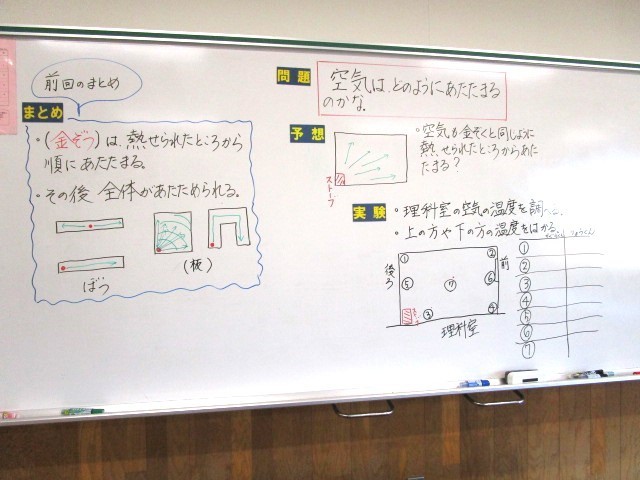 前回のまとめ
まとめ
・(金ぞく)は、熱せられたところから
順にあたたまる。
・その後 全体があたためられる。
ぼう
(板)
問題
空気は、どのようにあたたまる
のかな。
予想
・空気も金ぞくと同じように
熱せられたところからあた
たまる?
ストーブ
実験
・理科室の空気の温度を調べる。
・上の方や下の方の温度をはかる。
後ろ
前
①
②
⑤
⑦
⑥
③
④
理科室
①
②
③
④
⑤
⑥
⑦